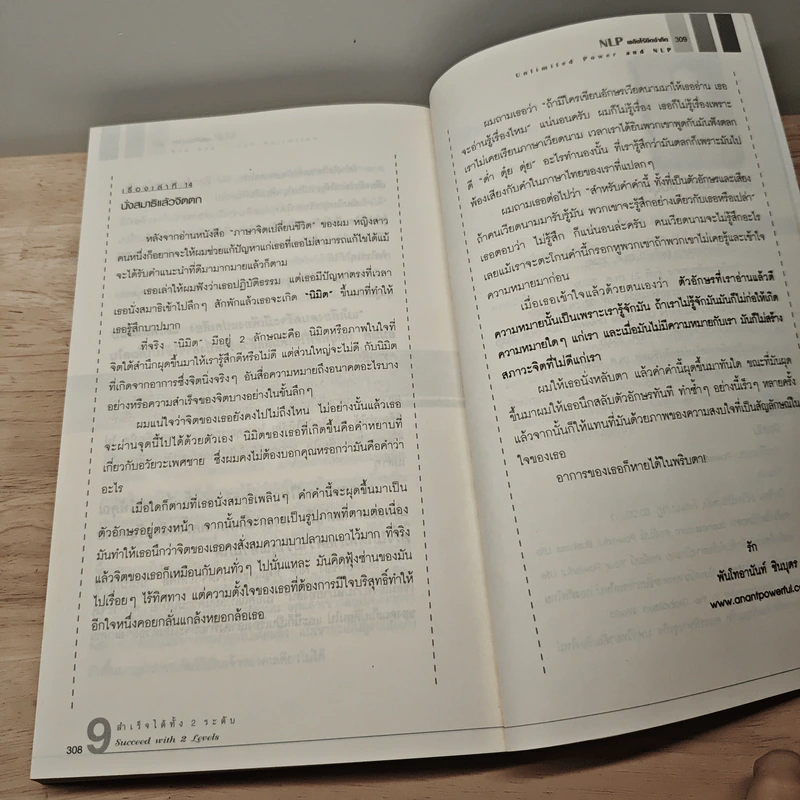 เรื่องเล่าที่ 14
นั่งสมาธิแล้วจิตตก
หลังจากอ่านหนังสือ "ภาษาจิตเปลี่ยนชีวิต" ของผม หญิงสาว
คนหนึ่งก็อยากจะให้ผมช่วยแก้ปัญหาแก่เธอที่เธอไม่สามารถแก้ไขได้แม้
จะได้รับคำแนะนำที่ดีมามากมายแล้วก็ตาม
เธอเล่าให้ผมฟังว่าเธอปฏิบัติธรรม แต่เธอมีปัญหาตรงที่เวลา
เธอนั่งสมาธิเข้าไปลึกๆ สักพักแล้วเธอจะเกิด "นิมิต" ขึ้นมาที่ทำให้
เธอรู้สึกบาปมาก
ที่จริง "นิมิต" มีอยู่ 2 ลักษณะคือ นิมิตหรือภาพในใจที่
จิตใต้สำนึกผุดขึ้นมาให้เรารู้สึกดีหรือไม่ดี แต่ส่วนใหญ่จะไม่ดี กับนิมิต
ที่เกิดจากอาการซึ่งจิตนิ่งจริงๆ อันสื่อความหมายถึงอนาคตอะไรบาง
อย่างหรือความสำเร็จของจิตบางอย่างในขั้นลึกๆ
ผมแน่ใจว่าจิตของเธอยังคงไปไม่ถึงไหน ไม่อย่างนั้นแล้วเธอ
จะผ่านจุดนี้ไปได้ด้วยตัวเอง นิมิตของเธอที่เกิดขึ้นคือคำหยาบที่
เกี่ยวกับอวัยวะเพศชาย ซึ่งผมคงไม่ต้องบอกคุณหรอกว่ามันคือคำว่า
อะไร
เมื่อใดก็ตามที่เธอนั่งสมาธิเพลินๆ คำคำนี้จะผุดขึ้นมาเป็น
ตัวอักษรอยู่ตรงหน้า จากนั้นก็จะกลายเป็นรูปภาพที่ตามต่อเนื่อง
มันทำให้เธอนึกว่าจิตของเธอคงสั่งสมความบาปลามกเอาไว้มาก ที่จริง
แล้วจิตของเธอก็เหมือนกับคนทั่วๆ ไปนั่นแหละ มันคิดฟุ้งซ่านของมัน
ไปเรื่อยๆ ไร้ทิศทาง แต่ความตั้งใจของเธอที่ต้องการมีใจบริสุทธิ์ทำให้
อีกใจหนึ่งคอยกลั่นแกล้งหยอกล้อเธอ
308 9 สำเร็จได้ทั้ง 2 ระดับ
Succeed with 2 Levels
NLP พลังไร้ขีดจำกัด 309
Unlimited Power and NLP
ผมถามเธอว่า "ถ้ามีใครเขียนอักษรเวียดนามมาให้เธออ่าน เธอ
จะอ่านรู้เรื่องไหม" แน่นอนครับ ผมก็ไม่รู้เรื่อง เธอก็ไม่รู้เรื่องเพราะ
เราไม่เคยเรียนภาษาเวียดนาม เวลาเราได้ยินพวกเขาพูดกันมันฟังตลก
ดี "ด่ำ ดุ๋ย ดุ่ย" อะไรทำนองนั้น ที่เรารู้สึกว่ามันตลกก็เพราะมันไป
พ้องเสียงกับคำในภาษาไทยของเราที่แปลกๆ
ผมถามเธอต่อไปว่า "สำหรับคำคำนี้ ทั้งที่เป็นตัวอักษรและเสียง
ถ้าคนเวียดนามมารับรู้มัน พวกเขาจะรู้สึกอย่างเดียวกับเธอหรือเปล่า"
เธอตอบว่า ไม่รู้สึก ก็แน่นอนล่ะครับ คนเวียดนามจะไม่รู้สึกอะไร
เลยแม้เราจะตะโกนคำนี้กรอกหูพวกเขาถ้าพวกเขาไม่เคยรู้และเข้าใจ
ความหมายมาก่อน
เมื่อเธอเข้าใจแล้วด้วยตนเองว่า ตัวอักษรที่เราอ่านแล้วตี
ความหมายนั้นเป็นเพราะเรารู้จักมัน ถ้าเราไม่รู้จักมันมันก็ไม่ก่อให้เกิด
ความหมายใดๆ แก่เรา และเมื่อมันไม่มีความหมายกับเรา มันก็ไม่สร้าง
สภาวะจิตที่ไม่ดีแก่เรา
ผมให้เธอนั่งหลับตา แล้วคำคำนี้ผุดขึ้นมาทันใด ขณะที่มันผุด
ขึ้นมาผมให้เธอนึกสลับตัวอักษรทันที ทำซ้ำๆ อย่างนี้เร็วๆ หลายครั้ง
แล้วจากนั้นก็ให้แทนที่มันด้วยภาพของความสงบใจที่เป็นสัญลักษณ์ใน
ใจของเธอ
อาการของเธอก็หายได้ในพริบตา!
รัก
พันโทอานันท์ ชินบุตร
www.anantpowerful.c